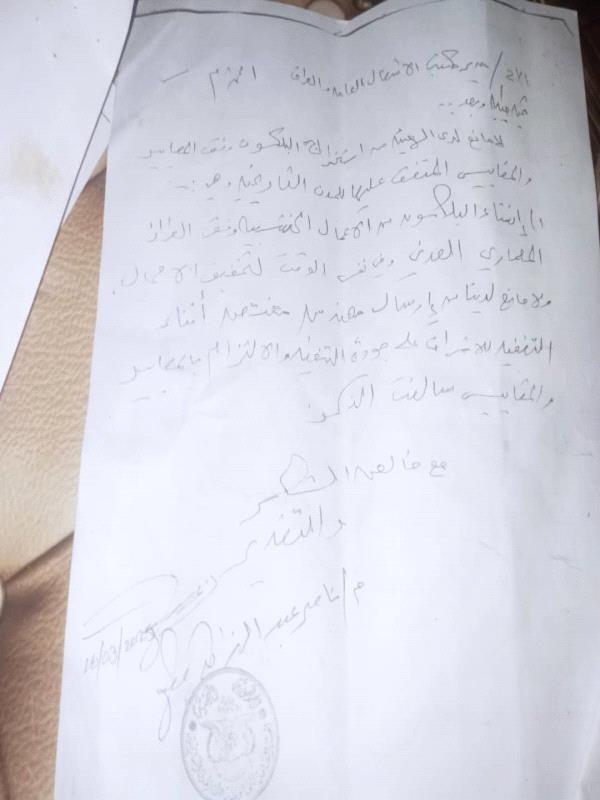 الأخ / مدير مكتب الاشغال العامة والطرق المحترم
تحية طيبة وبعد ..
لا مانع لدى الهيئة من استخراج البلكون وفق المعايير
والمقاييس المتفق عليها للمدن التاريخية وهي :-
١) إنشاء البلكون من الأعمال الخشبية وفق الطراز
المعماري الصنعاني وفي نفس الوقت لتخفيف الاحمال.
ولا مانع لدينا من إرسال مهندس مختص أثناء
التنفيذ للاشراف على جودة التنفيذ والالتزام بالمعايير
والمقاييس سالفة الذكر
مع خالص الشكر
والتقدير
م / ناصر عبد